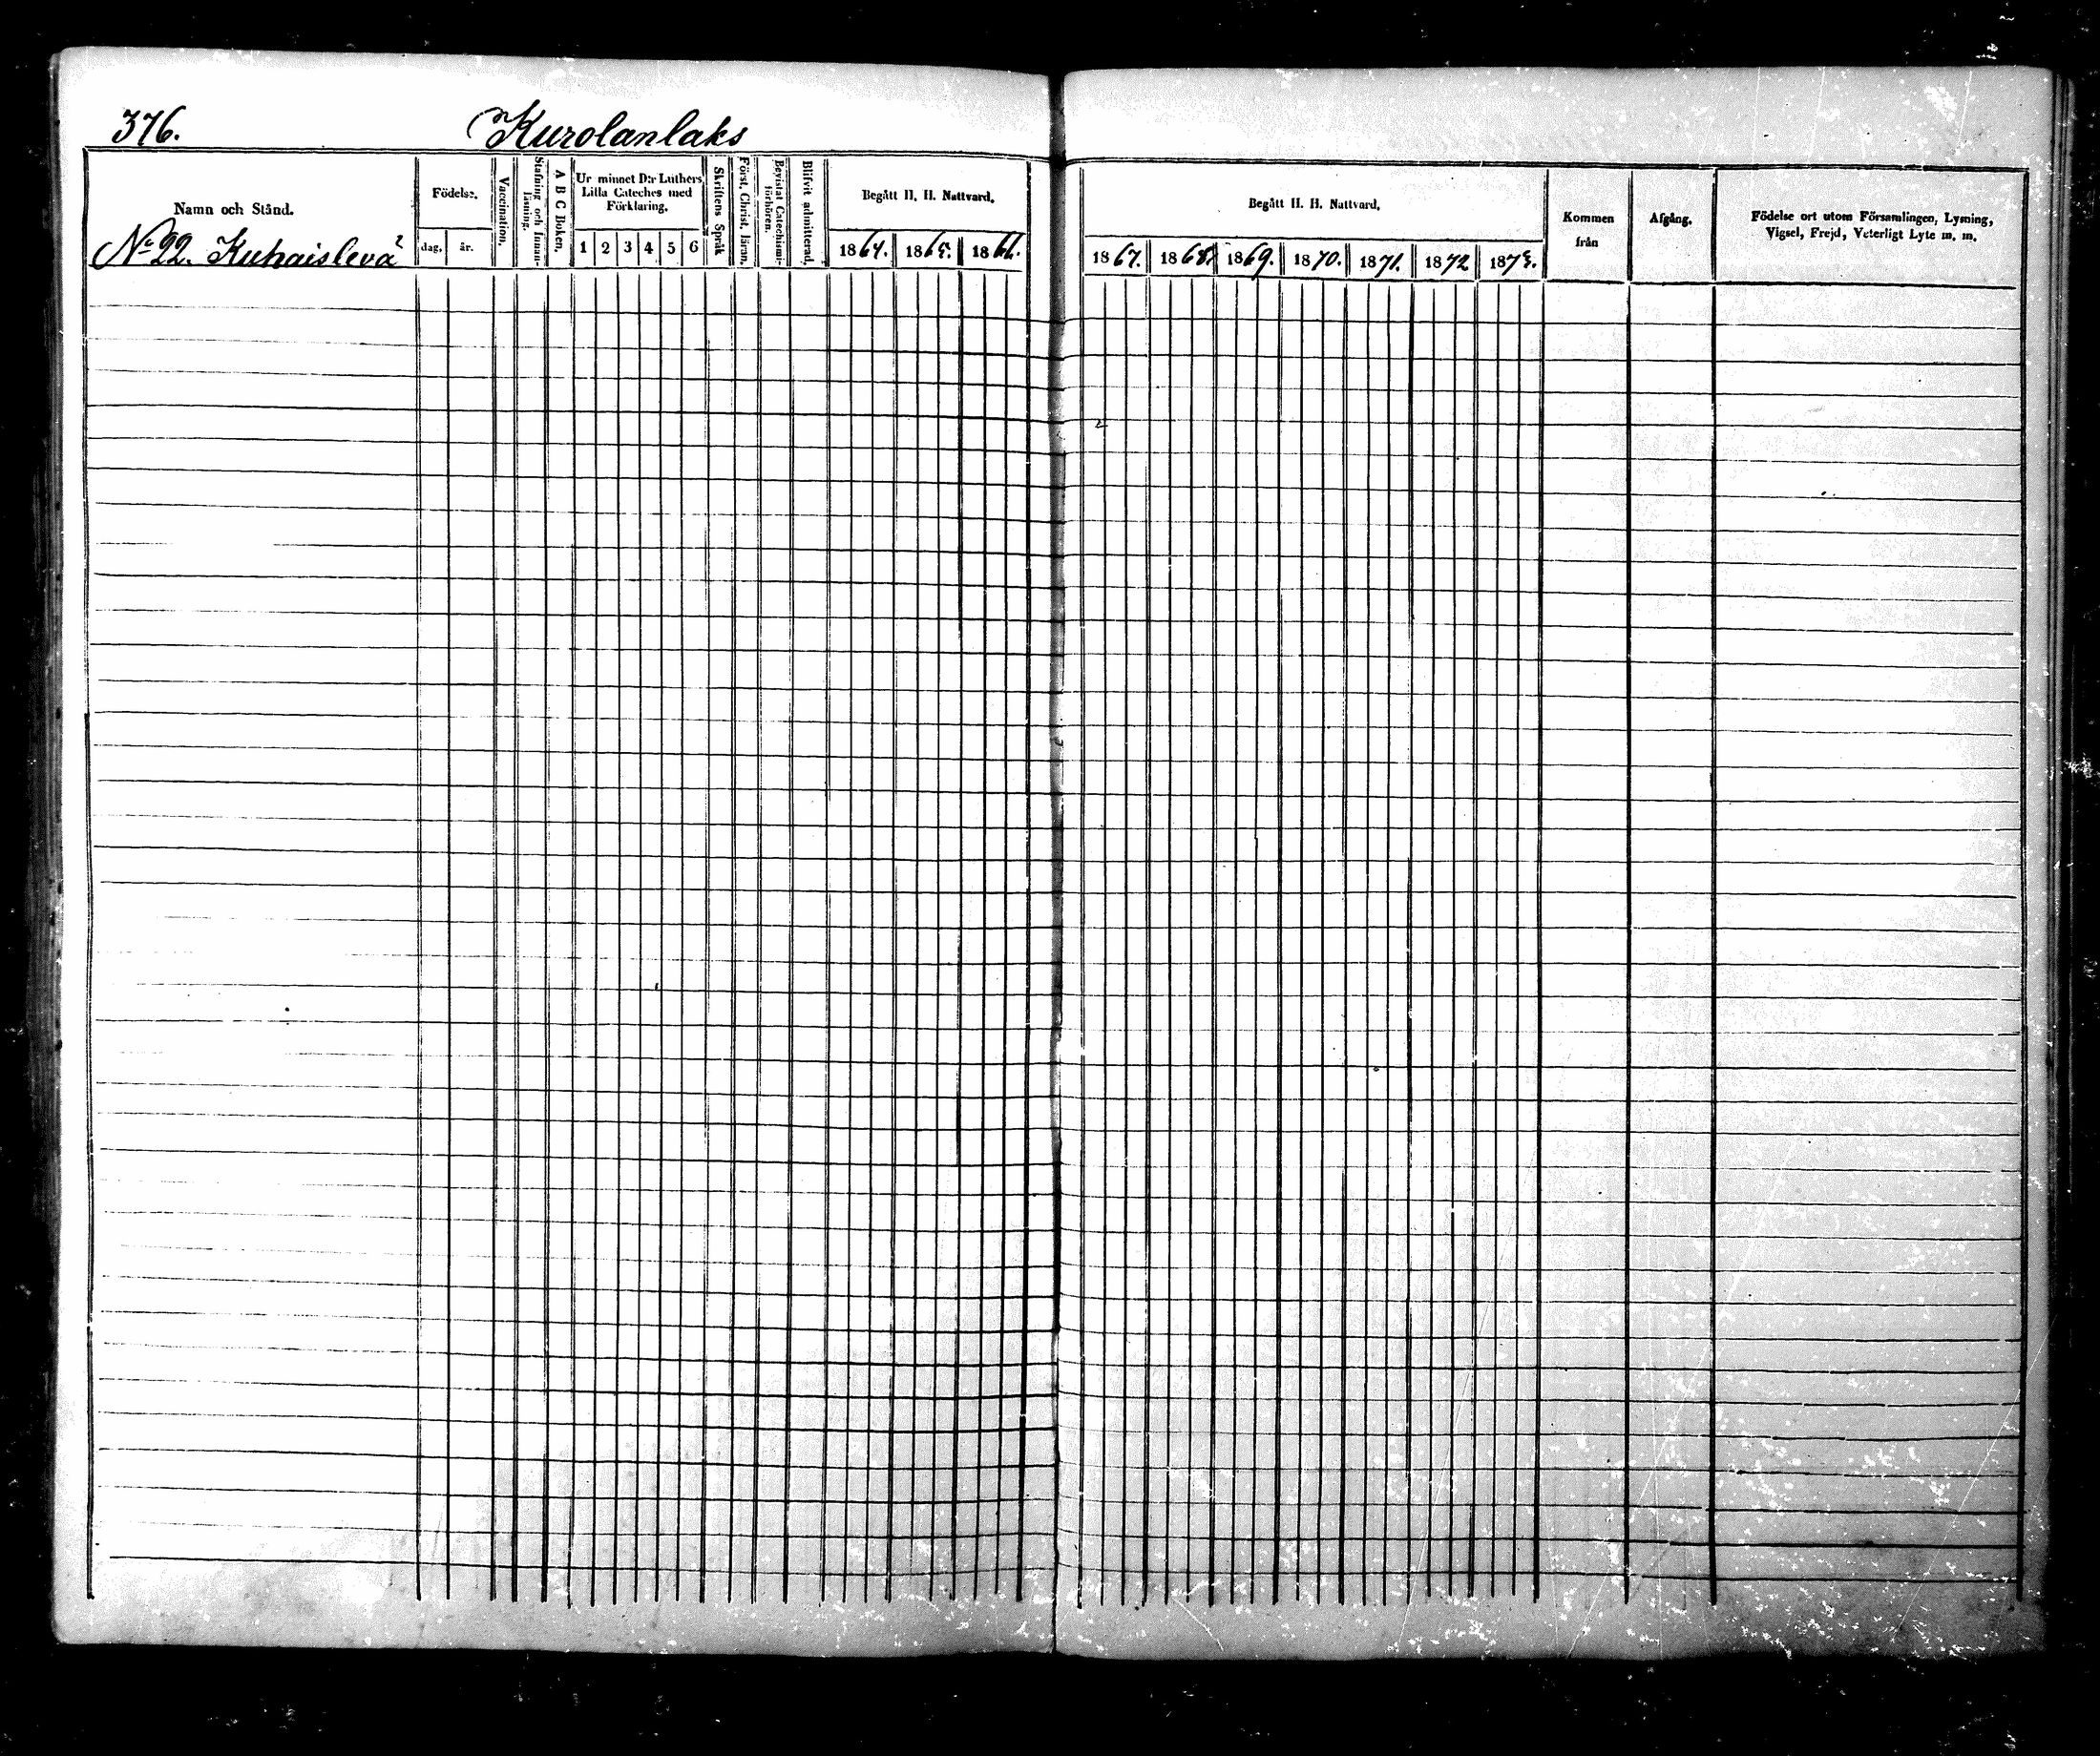 376. Kurolanlaks
Namn och Stånd.
No 22. Kuhaislevä
Födelse.
dag. år.
Vaccination.
Stafning och Innan-
läsning.
A B C Boken.
Ur minnet D:r Luthers
Lilla Cateches med
Förklaring.
1 2 3 4 5 6
Skriftens Språk
Först. Christ. läran.
Bevistat Catechismi-
förhören.
Blifvit admitterad.
Begått H. H. Nattvard.
1864. 1865. 1866.
Begått H. H. Nattvard.
1867. 1868. 1869. 1870. 1871. 1872 1873.
Kommen
från
Afgång.
Födelse ort utom Församlingen, Lysning,
Vigsel, Frejd, Veterligt Lyte m. m.